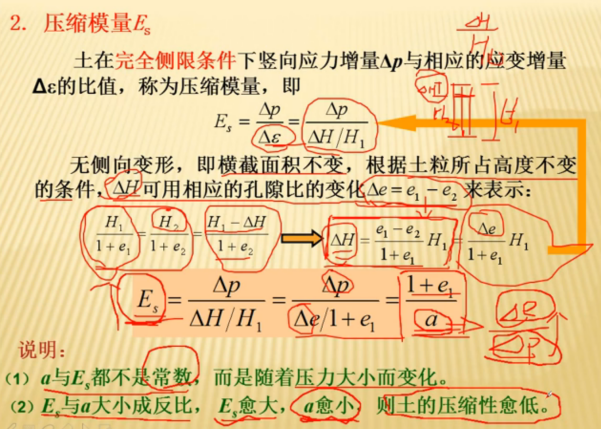 2. 压缩模量Es
土在完全侧限条件下竖向应力增量Δp与相应的应变增量
Δε的比值，称为压缩模量，即
Es = Δp/Δε = Δp/(ΔH/H1)
ΔH/H1
ΔH
H1
无侧向变形，即横截面积不变，根据土粒所占高度不变
的条件，ΔH可用相应的孔隙比的变化Δe=e1−e2来表示：
H1/(1+e1) = H2/(1+e2) = (H1−ΔH)/(1+e2) ΔH = (e1−e2)/(1+e1) H1 = Δe/(1+e1) H1
Es = Δp/(ΔH/H1) = Δp/(Δe/1+e1) = (1+e1)/a
Δe/Δp
说明：
（1）a与Es都不是常数，而是随着压力大小而变化。
（2）Es与a大小成反比，Es愈大，a愈小，则土的压缩性愈低。